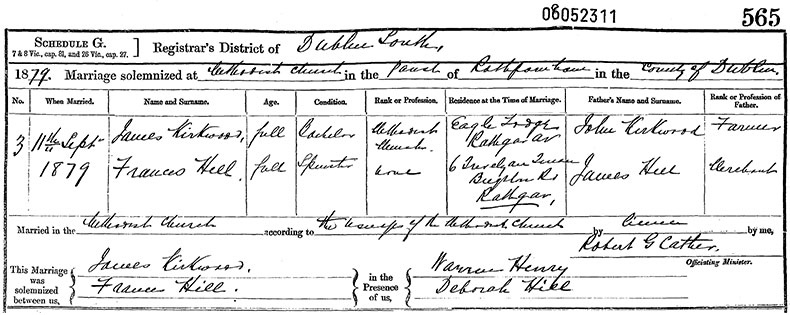 08052311 565
SCHEDULE G.
7 & 8 Vic., cap. 81, and 26 Vic., cap. 27.
Registrar's District of Dublin South,
1879. Marriage solemnized at Methodist Church in the Parish of Rathfarnham in the County of Dublin
No. When Married. Name and Surname. Age. Condition. Rank or Profession. Residence at the Time of Marriage. Father's Name and Surname. Rank or Profession of Father.
3 11th Sept 1879
James Kirkwood, full Bachelor Methodist Minister Eagle Lodge Rathgar av John Kirkwood Farmer
Frances Hill. full Spinster none 6 Brighton Rd Rathgar, James Hill Merchant
Married in the Methodist Church according to the usages of the Methodist Church by license by me,
Robert G Cather.
Officiating Minister.
This Marriage was solemnized between us,
James Kirkwood.
Frances Hill.
in the Presence of us,
Warren Henry
Deborah Hill